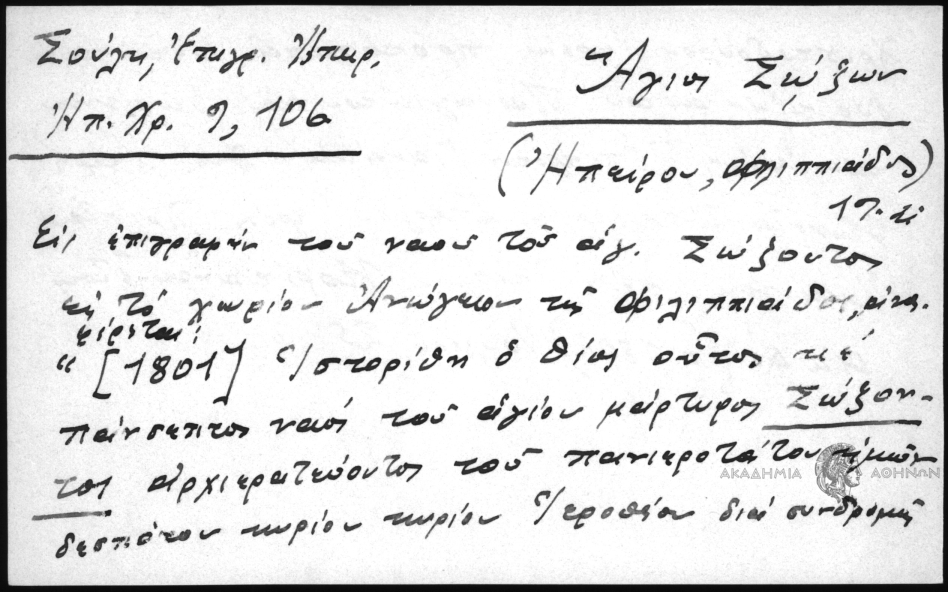 Σούλη, Ἐπιγρ. Ἠπειρ,
Ἠπ. Χρ. 9, 106
Ἅγιος Σώζων
(Ἠπείρου, Φιλιππιάδος)
Εἰς ἐπιγραφὴν τοῦ ναοῦ τοῦ ἁγ. Σώζοντος
εἰς τὸ χωρίον Ἀνώγειον τῆς Φιλιππιάδος, ἀνα-
φέρεται:
"[1801] Ἱστορίθη ὁ θῖος οὗτος κὲ
πάνσεπτος ναός τοῦ ἁγίου μάρτυρος Σώζον-
τος ἀρχιερατεύοντος τοῦ πανιεροτάτου ἡμῶν
δεσπότου κυρίου κυρίου Ἱεροθέου διά συνδρομῆς
ΑΚΑΔΗΜΙΑ ΑΘΗΝΩΝ